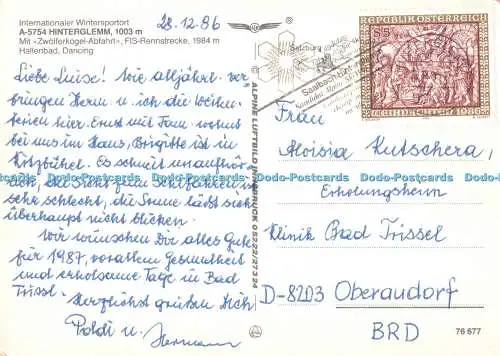 Internationaler Wintersportort
A-5754 HINTERGLEMM, 1003 m
Mit «Zwölferkogel-Abfahrt», FIS-Rennstrecke, 1984 m
Hallenbad, Dancing
28.12.86
Liebe Luise! Wie alljährl. ver-
bringen Herm u. ich die Weihn.
ferien hier. Ernst mit Fam. wohnt
bei uns im Haus, Brigitte ist in
Kitzbühel. Es schneit unaufhör-
lich, die Sicht zum Schifahren ist
sehr schlecht, die Sonne läßt sich
überhaupt nicht blicken.
Wir wünschen Dir alles Gute
für 1987, vor allem Gesundheit
und erholsame Tage in Bad
Trissl.
Herzlichst grüßen Dich
Poldi u. Hermann
© ALPINE LUFTBILD INNSBRUCK 05222/37324
Salzburg
Saalbach
REPUBLIK ÖSTERREICH
S 5
WEIHNACHTEN 1986
Frau
Aloisia Kutschera,
Erholungsheim
Klinik Bad Trissel
D-8203 Oberaudorf
BRD
76 677
Dodo-Postcards Dodo-Postcards Dodo-Postcards Dodo-Postcards Dodo-Postcards